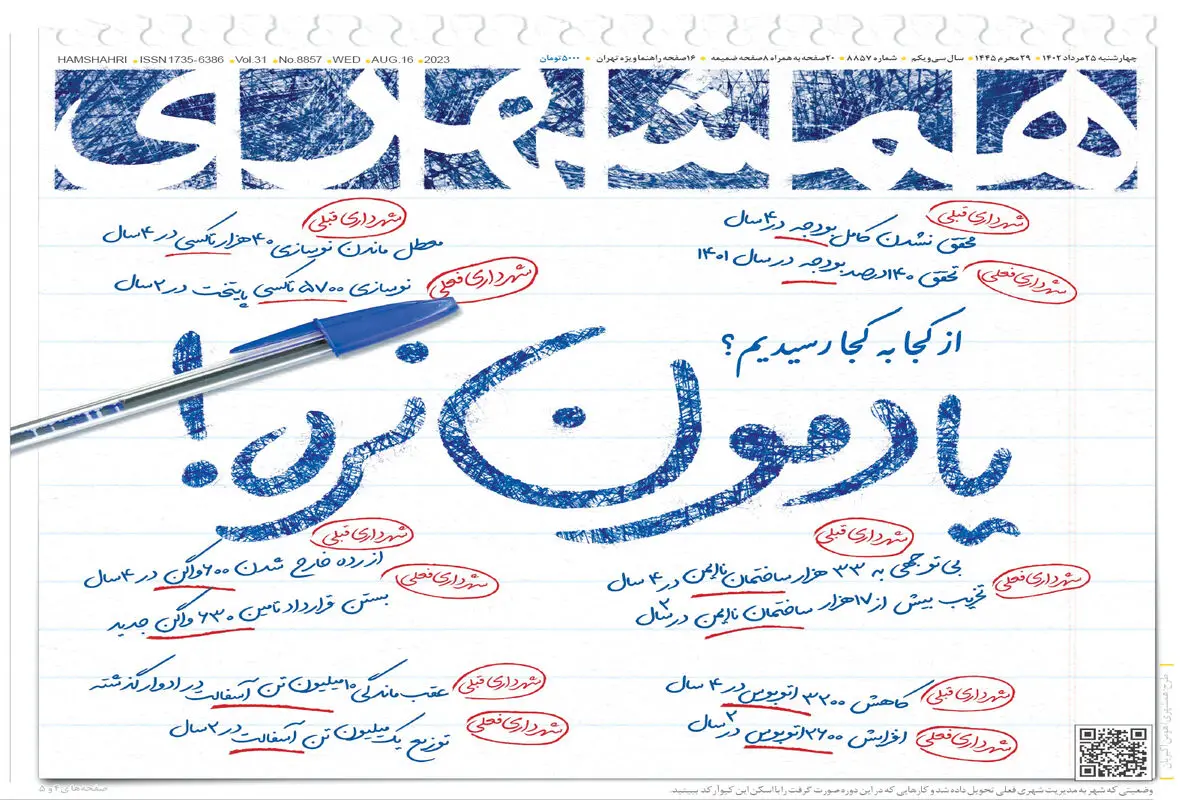 چهارشنبه ۲۵ مرداد ۱۴۰۲ • ۲۹ محرم ۱۴۴۵ • سال سی و یکم • شماره ۸۸۵۷ • ۲۰ صفحه به همراه ۸ صفحه ضمیمه • ۱۶ صفحه راهنما ویژه تهران • ۵۰۰۰ تومان
HAMSHAHRI • ISSN 1735-6386 • Vol.31 • No.8857 • WED • AUG.16 • 2023
همشهری
شهرداری قبلی
محقق نشدن کامل بودجه در ۴ سال
شهرداری فعلی
تحقق ۱۴۰ درصد بودجه در سال ۱۴۰۱
شهرداری قبلی
معطل ماندن نوسازی ۴۰ هزار تاکسی در ۴ سال
شهرداری فعلی
نوسازی ۵۷۰۰ تاکسی پایتخت در ۲ سال
از کجا به کجا رسیدیم؟
یادمون نره!
شهرداری قبلی
بی توجهی به ۳۳ هزار ساختمان ناایمن در ۴ سال
شهرداری فعلی
تخریب بیش از ۱۷ هزار ساختمان ناایمن در ۲ سال
شهرداری قبلی
از رده خارج شدن ۶۰۰ واگن در ۴ سال
شهرداری فعلی
بستن قرارداد تامین ۶۳۰ واگن جدید
شهرداری قبلی
کاهش ۳۲۰۰ اتوبوس در ۴ سال
شهرداری فعلی
افزایش ۲۶۰۰ اتوبوس در ۲ سال
شهرداری قبلی
عقب ماندگی ۱۰ میلیون تن آسفالت در ادوار گذشته
شهرداری فعلی
توزیع یک میلیون تن آسفالت در ۲ سال
وضعیتی که شهر به مدیریت شهری فعلی تحویل داده شد و کارهایی که در این دوره صورت گرفت را با اسکن این کیوآرکد ببینید.
صفحه‌های ۴ و ۵